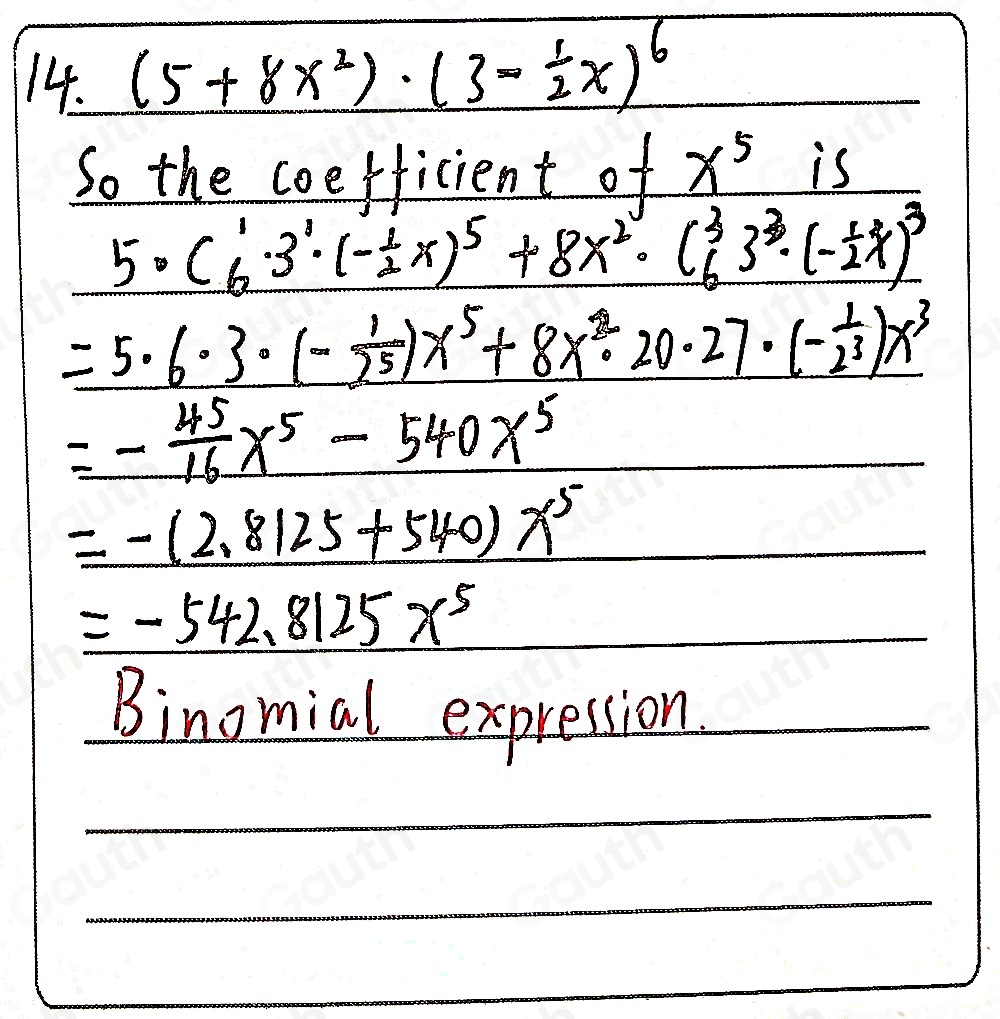 14. (5+8x²)·(3-½x)⁶
So the coefficient of x⁵ is
5·C₆¹·3¹·(-½x)⁵+8x²·C₆³3³·(-½x)³
=5·6·3·(-1/2⁵)x⁵+8x²·20·27·(-1/2³)x³
=-45/16x⁵-540x⁵
=-(2.8125+540)x⁵
=-542.8125x⁵
Binomial expression.